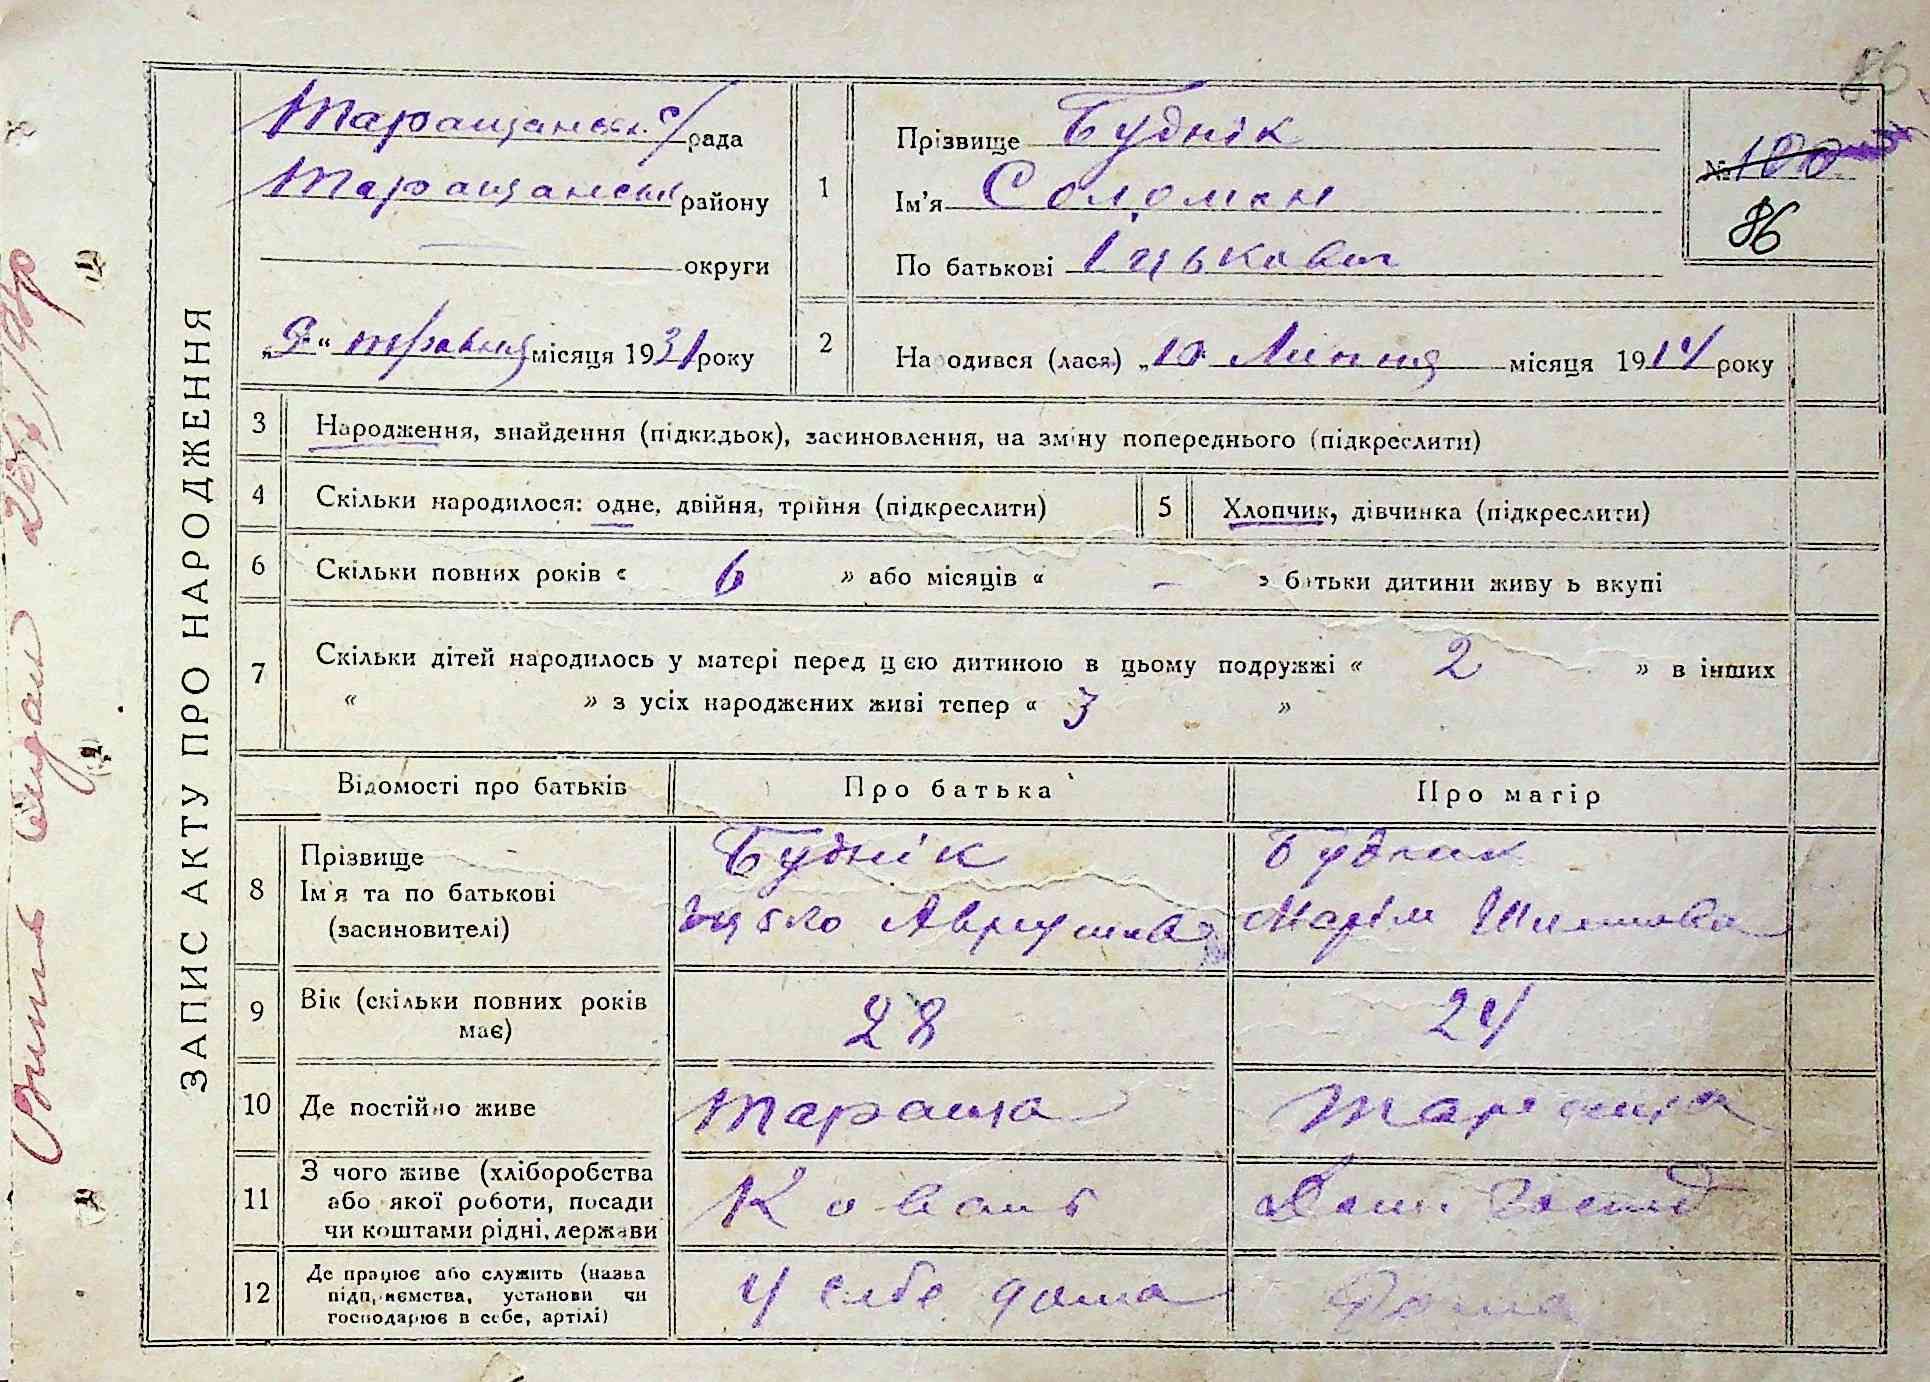 86
ЗАПИС АКТУ ПРО НАРОДЖЕННЯ
Таращанськ. с/рада
Таращанськ району
округи
„9“ травня місяця 1931 року
1
Прізвище Буднік
Ім'я Соломон
По батькові Іцькович
№ 100
86
2
Народився (лася) „10 Липня місяця 1914 року
3
Народження, знайдення (підкидьок), засиновлення, на зміну попереднього (підкреслити)
4
Скільки народилося: одне, двійня, трійня (підкреслити)
5
Хлопчик, дівчинка (підкреслити)
6
Скільки повних років « 6 » або місяців « – » батьки дитини живуть вкупі
7
Скільки дітей народилось у матері перед цією дитиною в цьому подружжі « 2 » в інших
« » з усіх народжених живі тепер « 3 »
Відомості про батьків
Про батька
Про матір
8
Прізвище
Ім'я та по батькові
(засиновителі)
Буднік
Іцько
Будник
Маріям
9
Вік (скільки повних років
має)
28
24
10
Де постійно живе
Тараща
Тараща
11
З чого живе (хліборобства
або якої роботи, посади
чи коштами рідні, держави
Коваль
Дом. Господ
12
Де працює або служить (назва
підприємства, установи чи
господарює в себе, артілі)
У себе дома
Дома